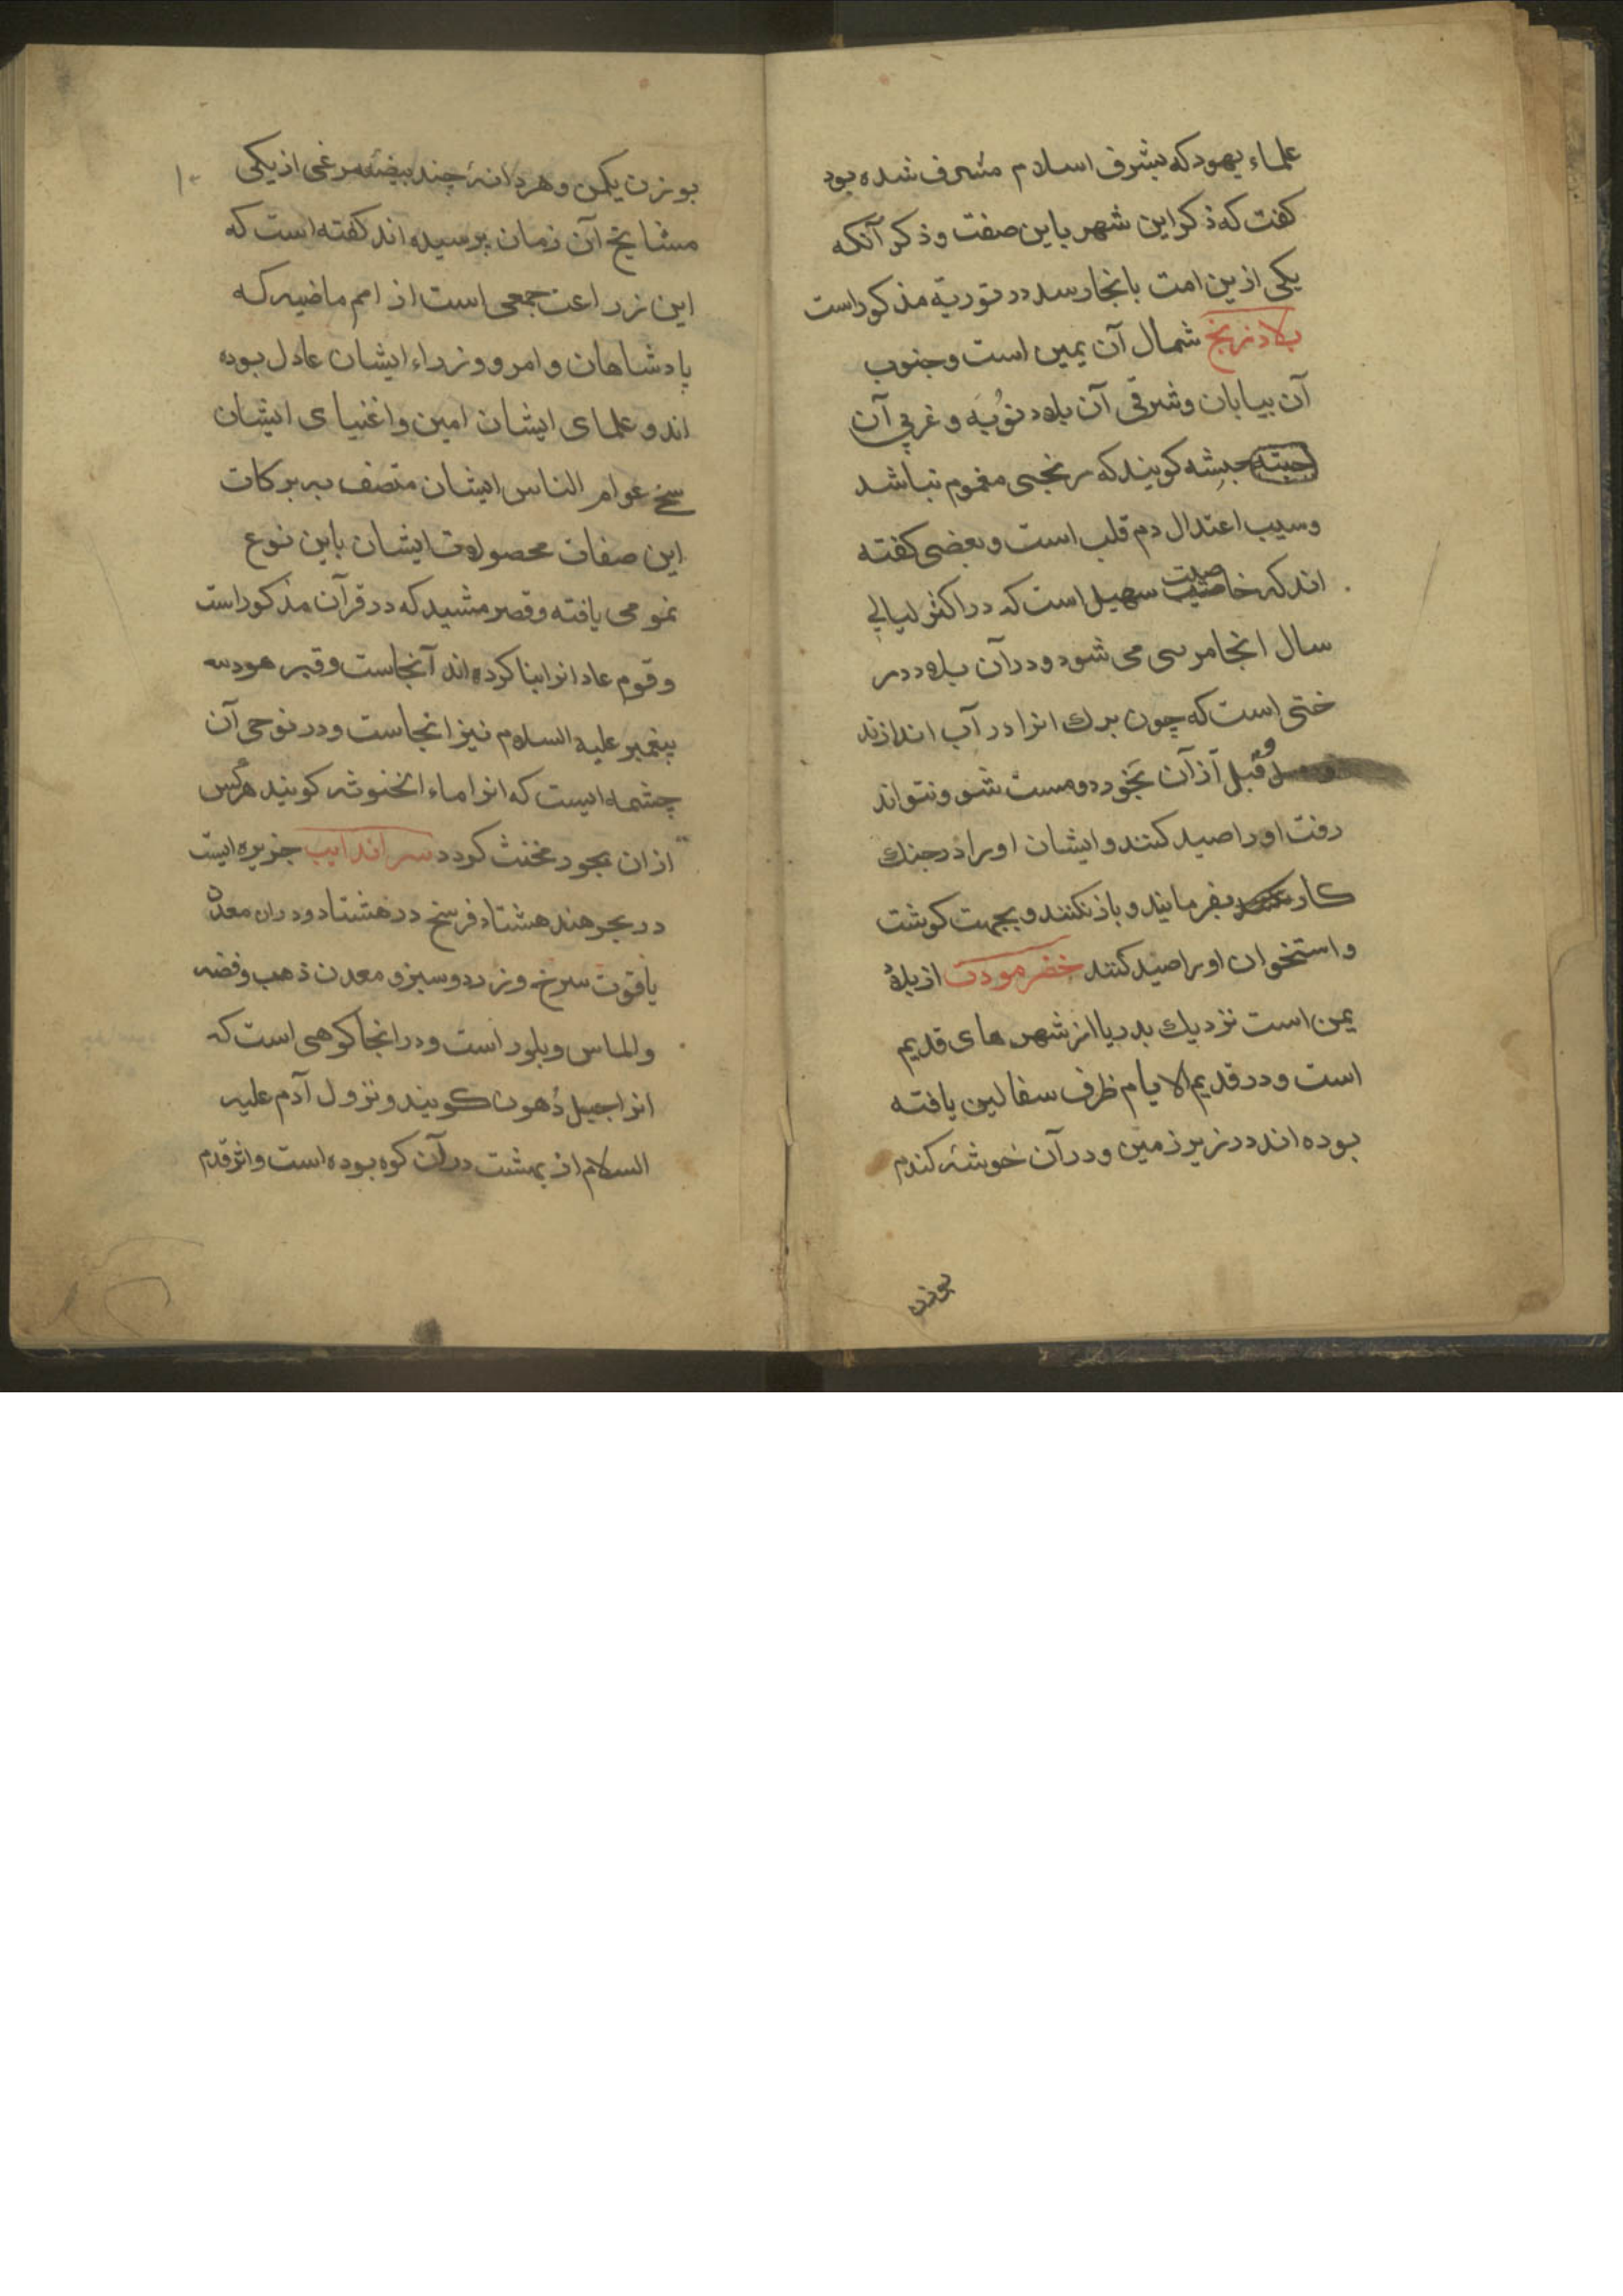 علماء یهود که بشرف اسلام مشرف شده بود
کفت که ذکر این شهر باین صفت و ذکر آنکه
یکی ازین امت بانجا رسد در توریة مذکور است
بلاد زنج شمال آن یمین است و جنوب
آن بیابان و شرقی آن بلاد نُوبَه و غربی آن
حبشه کویند که زنجی مغموم نباشد
و سبب اعتدال دم قلب است و بعضی کفته
اند که خاصیت سهیل است که در اکثر لیالی
سال انجا مرسی می شود و در آن بلاد در
ختی است که چون برك انرا در آب اندازند
و قبل از آن بخورد و مست شو و نتواند
رفت او را صید کنند و ایشان او را در جنك
کار بفرمایند و باز نکنند و بجهت کوشت
و استخوان او را صید کنند خضرمودت از بلاد
یمن است نزدیك بدریا از شهر های قدیم
است و در قدیم الایام ظرف سفالین یافته
بوده اند در زیر زمین و در آن خوشهٔ کندم
بوزن
۱۰
بوزن یکمن و هر دانهٔ چند بیضهٔ مرغی از یکی
مشایخ آن زمان پرسیده اند کفته است که
این زراعت جمعی است از امم ماضیه که
پادشاهان و امر و وزراء ایشان عادل بوده
اند و علمای ایشان امین و اغنیای ایشان
سخی عوام الناس ایشان متصف به برکات
این صفات محصولات ایشان باین نوع
نمو می یافته و قصر مشید که در قرآن مذکور است
و قوم عاد انرا بنا کرده اند آنجاست و قبر هود
پیغمبر علیه السلام نیز انجاست و در نوحی آن
چشمه ایست که انرا ماء انخنوثه کویند هرکس
از ان بخورد مخنث کردد سر اندایب جزیره ایست
در بحر هند هشتاد فرسخ در هشتاد و دران معدن
یاقوت سرخ و زرد و سبز و معدن ذهب و فضه
و الماس و بلور است و در انجا کوهی است که
انرا جبیل دُهون کویند و نزول آدم علیه
السلام از بهشت در آن کوه بوده است و اثر قدم